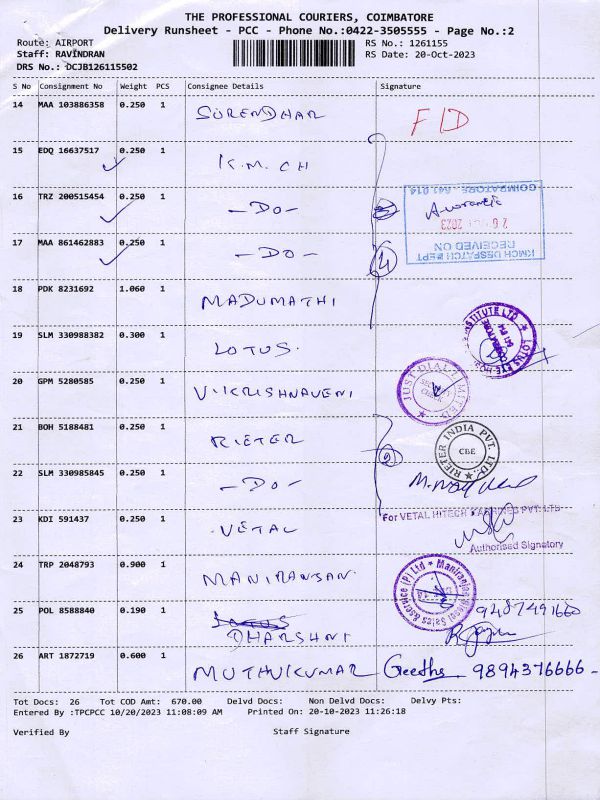 THE PROFESSIONAL COURIERS, COIMBATORE
Delivery Runsheet - PCC - Phone No.:0422-3505555 - Page No.:2
Route: AIRPORT RS No.: 1261155
Staff: RAVINDRAN RS Date: 20-Oct-2023
DRS No.: DCJB126115502
S No Consignment No Weight PCS Consignee Details Signature
14 MAA 103886358 0.250 1 SURENDHAR
15 EDQ 16637517 0.250 1 K.M.CH
16 TRZ 200515454 0.250 1 -DO-
COIMBATORE - 641 014
2023
RECEIVED ON
KMCH DESPATCH DEPT
17 MAA 861462883 0.250 1 -DO- 4
18 PDK 8231692 1.060 1 MADUMATHI
19 SLM 330988382 0.300 1 LOTUS.
20 GPM 5280585 0.250 1 V.KRISHNAVENI
JUST DIAL LIMITED
SECURITY CHECK
21 BOH 5188481 0.250 1 RIETER
RIETER INDIA PVT. LTD.
CBE
22 SLM 330985845 0.250 1 -DO-
23 KDI 591437 0.250 1 VETAL
For VETAL HITECH PVT. LTD
Authorised Signatory
24 TRP 2048793 0.900 1 MANIRANSAN
25 POL 8588840 0.190 1 DHARSHNI 9487491660
26 ART 1872719 0.600 1 MUTHUKUMAR Geetha 9894376666-
Tot Docs: 26 Tot COD Amt: 670.00 Delvd Docs: Non Delvd Docs: Delvy Pts:
Entered By :TPCPCC 10/20/2023 11:08:09 AM Printed On: 20-10-2023 11:26:18
Verified By Staff Signature